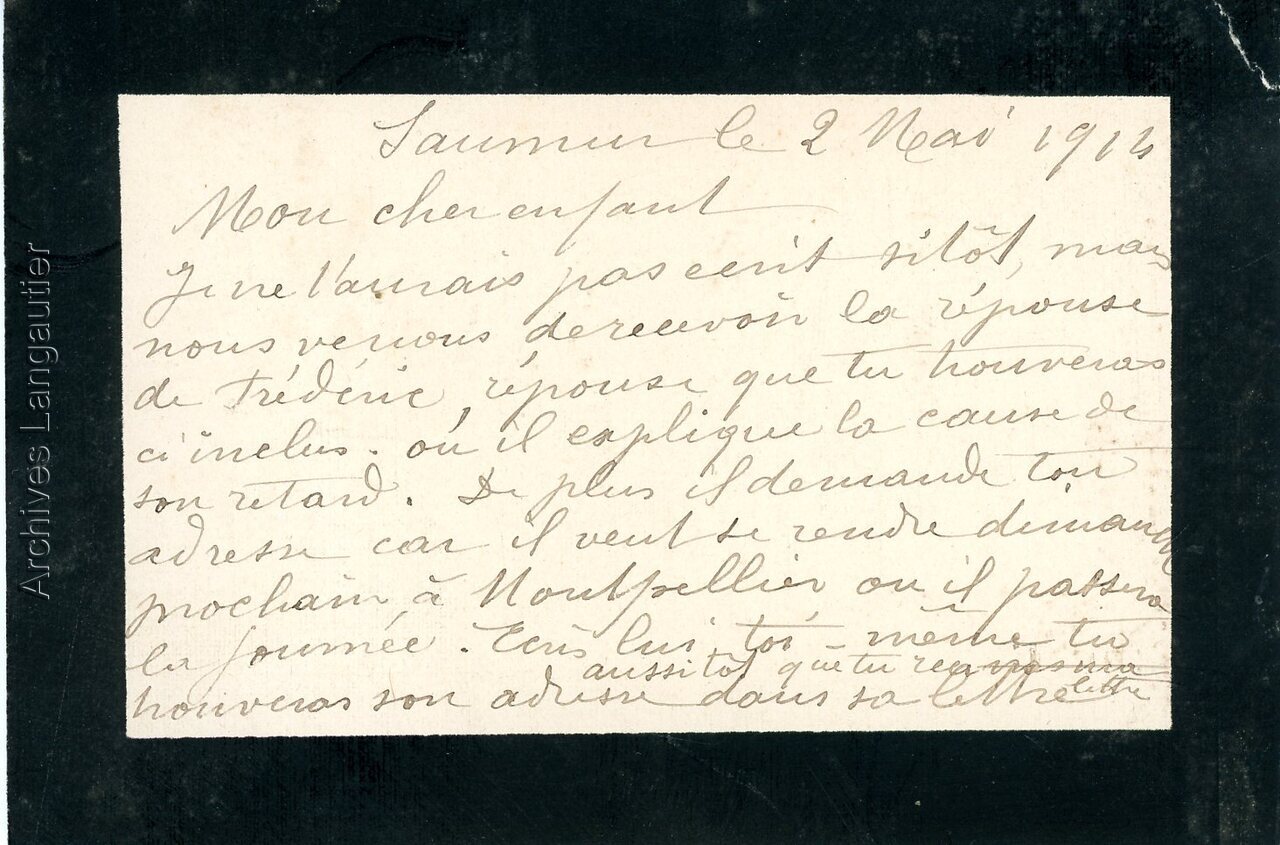 Saumur le 2 Mai 1914
Mon cher enfant
Je ne t'aurais pas ecrit sitôt, mais
nous venons de recevoir la réponse
de Frédéric, réponse que tu trouveras
ci inclus. où il explique la cause de
son retard. De plus il demande ton
adresse car il veut se rendre dimanche
prochain à Montpellier ou il passera
la journée. Ecris lui toi-même tu
aussitôt que tu ma
trouveras son adresse dans sa lettre lettre
Archives Langautier